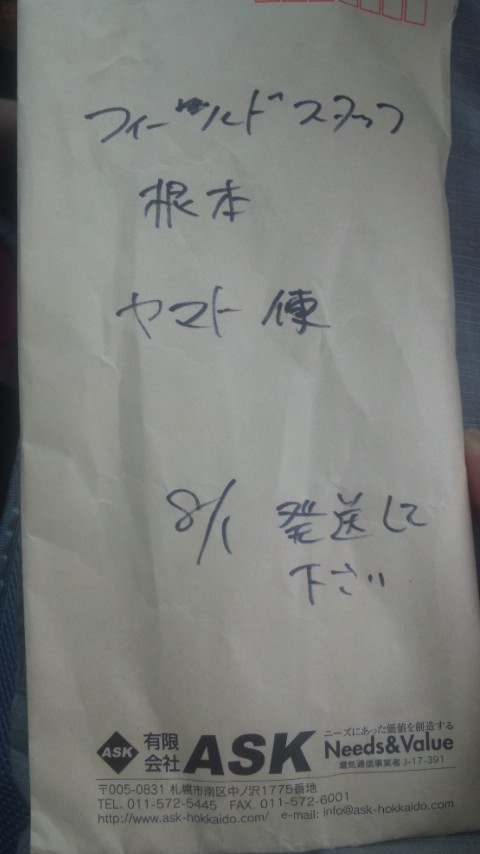 フィールドスタッフ
根本
ヤマト便
8/1 発送して
下さい
ASK 有限会社 ASK
ニーズにあった価値を創造する
Needs&Value
電気通信事業者 J-17-391
〒005-0831 札幌市南区中ノ沢1775番地
TEL. 011-572-5445 FAX. 011-572-6001
http://www.ask-hokkaido.com/ e-mail: info@ask-hokkaido.com